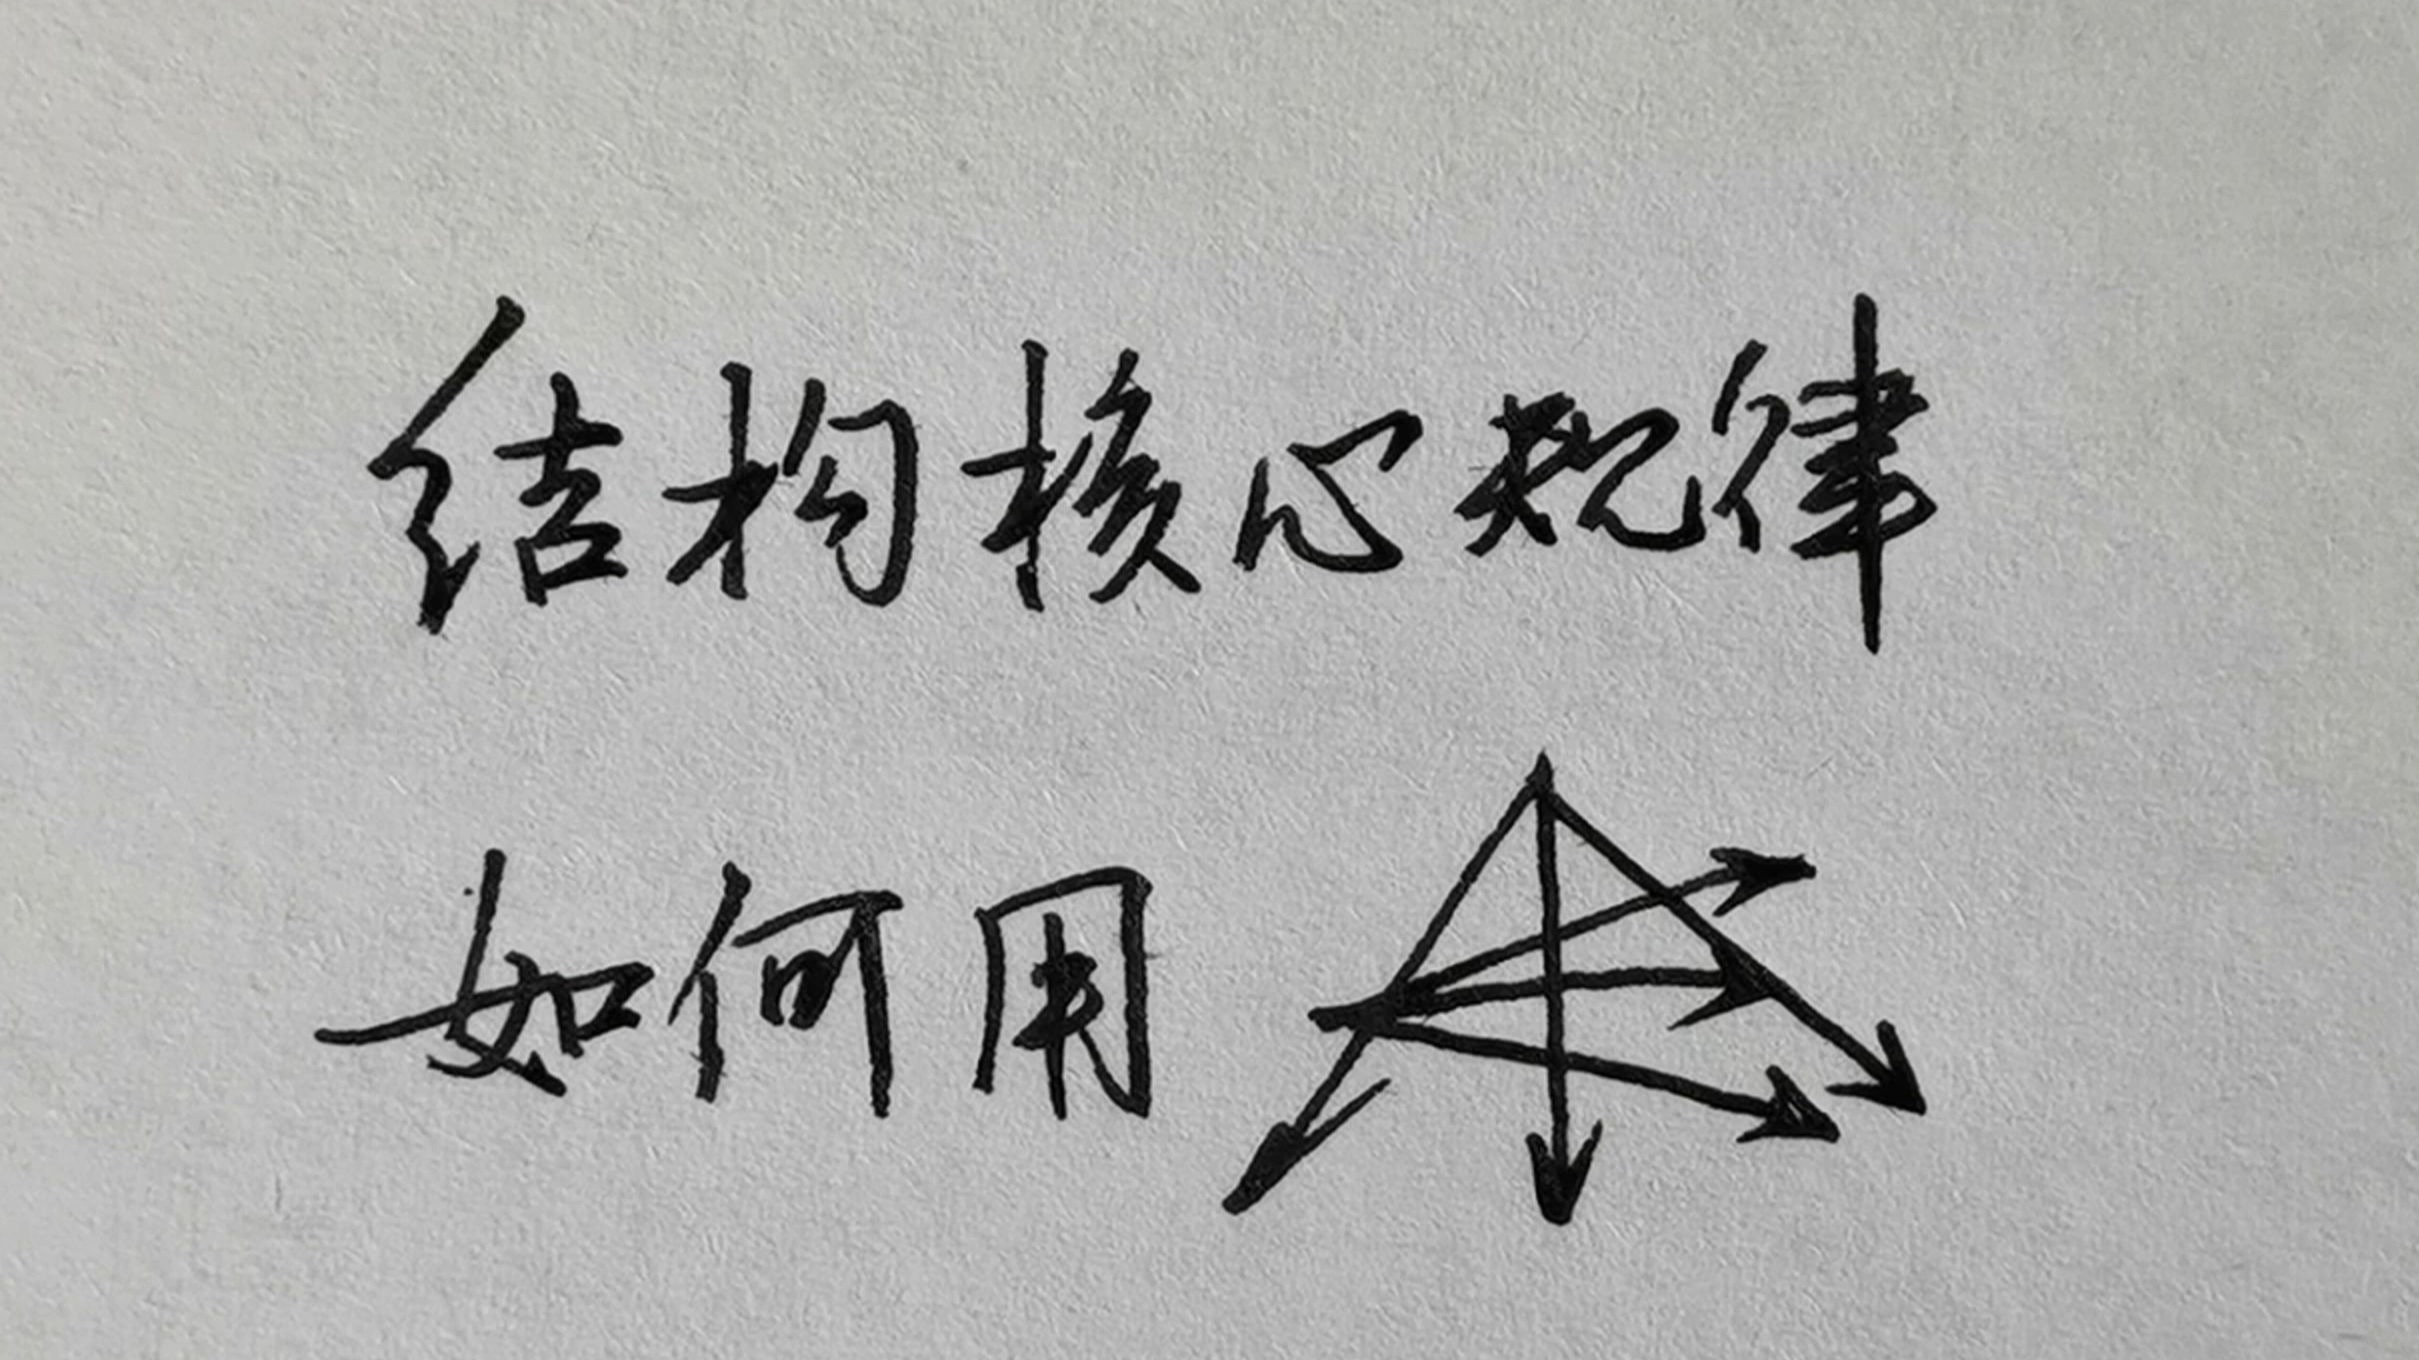 结构核心规律
如何用